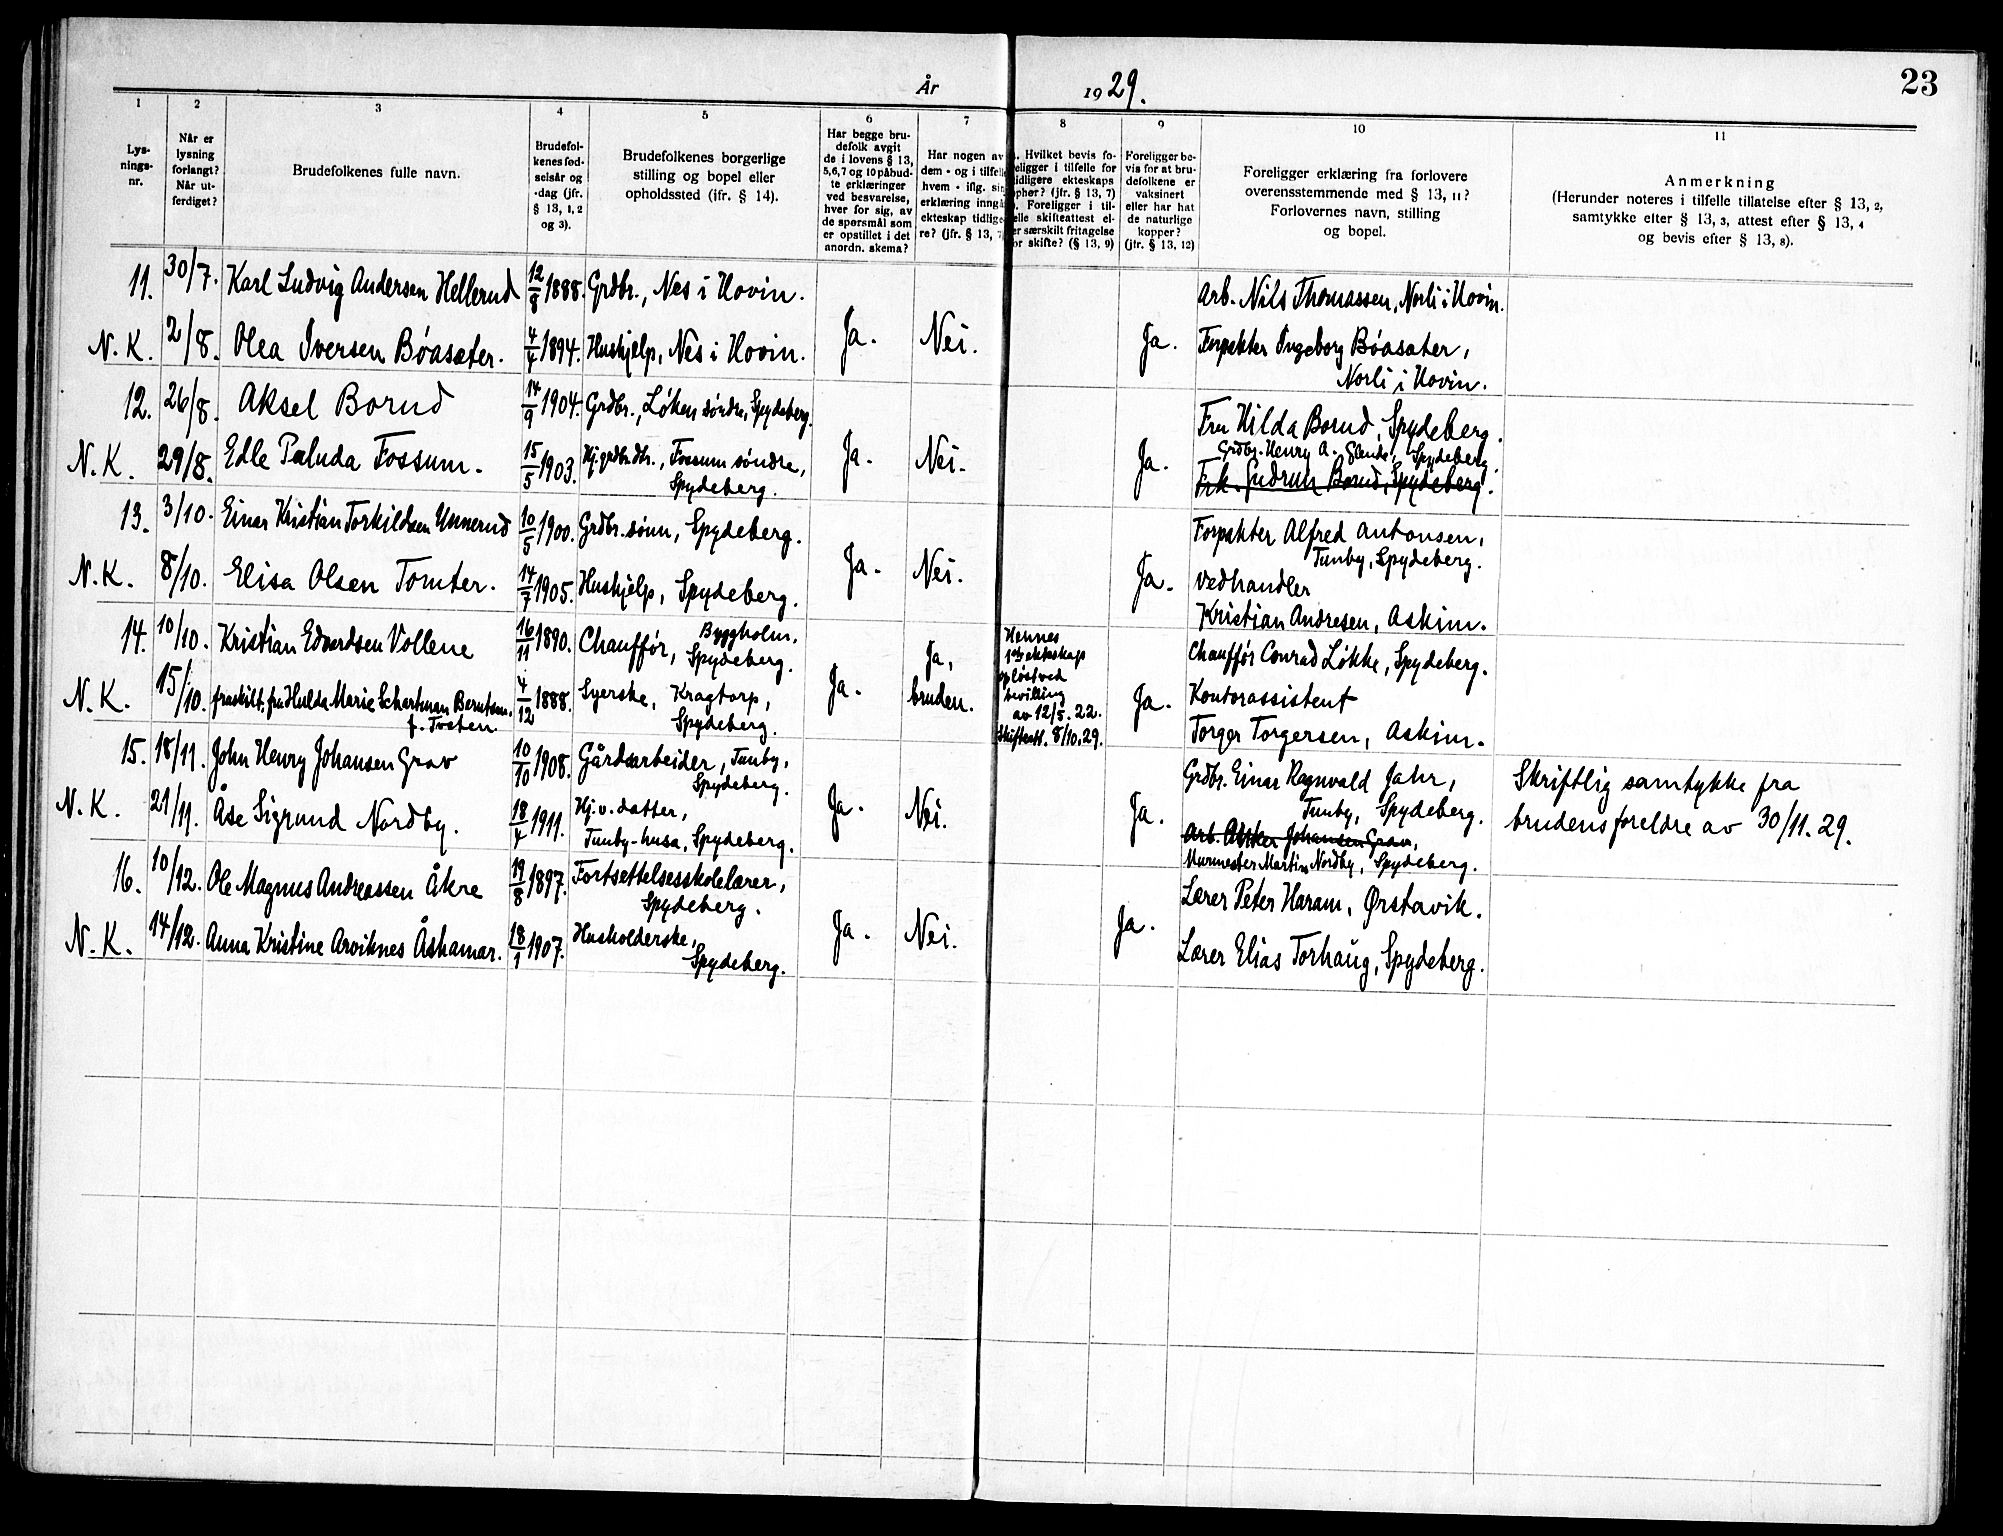 År 1929.
23
1
Lys-
nings-
nr.
2
Når er
lysning
forlangt?
Når ut-
ferdiget?
3
Brudefolkenes fulle navn.
4
Brudefol-
kenes fød-
selsår og
-dag (jfr.
§ 13, 1, 2
og 3).
5
Brudefolkenes borgerlige
stilling og bopel eller
opholdssted (jfr. § 14).
6
Har begge bru-
defolk avgit
de i lovens § 13,
5,6,7 og 10 påbud-
te erklæringer
ved besvarelse,
hver for sig, av
de spørsmål som
er opstillet i det
anordn. skema?
7
Har nogen av
dem - og i tilfelle
hvem - iflg. sin
erklæring inngå
ekteskap tidlige-
re? (jfr. § 13, 7
8
. Hvilket bevis fo-
religger i tilfelle for
tidligere ekteskaps
ophør? (jfr. § 13, 7)
. Foreligger i til-
elle skifteattest el-
er særskilt fritagelse
or skifte? (§ 13, 9)
9
Foreligger be-
vis for at bru-
defolkene er
vaksinert
eller har hat
de naturlige
kopper?
(jfr. § 13, 12)
10
Foreligger erklæring fra forlovere
overensstemmende med § 13, 11?
Forlovernes navn, stilling
og bopel.
11
Anmerkning
(Herunder noteres i tilfelle tillatelse efter § 13, 2,
samtykke efter § 13, 3, attest efter § 13, 4
og bevis efter § 13, 8).
11. 30/7. Karl Ludvig Andersen Hellerud 12/8 1888. Grdbr., Nes i Hovin. Arb. Nils Thomassen, Norli i Hovin.
N. K. 2/8. Olea Iversen Bøasæter. 4/4 1894. Huskjelp, Nes i Hovin. Ja. Nei. Ja. Forpakter Ingeborg Bøasæter,
Norli i Hovin.
12. 26/8. Aksel Borud 14/9 1904. Grdbr., Løken søndre, Spydeberg. Fru Hilda Borud, Spydeberg.
Grdbr. Henry A. Glende, Spydeberg.
N. K. 29/8. Edle Paluda Fossum. 15/5 1903. Hj. grdbr.dtr., Fossum søndre, Ja. Nei. Ja. Frk. Gudrun Borud, Spydeberg.
Spydeberg.
13. 3/10. Einar Kristian Torkildsen Unnerud 10/5 1900. Grdbr. sønn, Spydeberg. Forpakter Alfred Antonsen,
Tunby, Spydeberg.
N. K. 8/10. Elisa Olsen Tomter. 14/7 1905. Huskjelp, Spydeberg. Ja. Nei. Ja. Vedhandler
Kristian Andresen, Askim.
14. 10/10. Kristian Edvardsen Vollene 16/11 1890. Chauffør, Byggholm,
Spydeberg.
Ja,
bruden.
Hennes
1ste ekteskap
opløst ved
bevilling
av 12/5. 22.
Skifteatt. 8/10.29.
Chauffør Conrad Løkke, Spydeberg.
N. K. 15/10. fraskilt. fru Hulda Marie Schartman Berntsen.
f. Tveten
4/12 1888. Syerske, Kragtorp,
Spydeberg.
Ja. Ja. Kontorassistent
Torger Torgersen, Askim.
15. 18/11. John Henry Johansen Grav 10/10 1908. Gårdsarbeider, Tunby,
Spydeberg.
Grdbr. Einar Ragnvald Jahr,
Tunby, Spydeberg.
Skriftlig samtykke fra
brudens foreldre av 30/11. 29.
N. K. 21/11. Åse Sigrund Nordby. 18/4 1911. Hj. v. datter,
Tunby-husa, Spydeberg.
Ja. Nei. Ja. Johansen Grav,
Murmester Martin Nordby, Spydeberg.
16. 10/12. Ole Magnus Andreassen Åkre 19/8 1897. Fortsettelsesskolelærer,
Spydeberg.
Lærer Peter Haram, Ørstavik.
N. K. 14/12. Anna Kristine Arviknes Åshamar. 18/1 1907. Husholderske,
Spydeberg.
Ja. Nei. Ja. Lærer Elias Torhaug, Spydeberg.